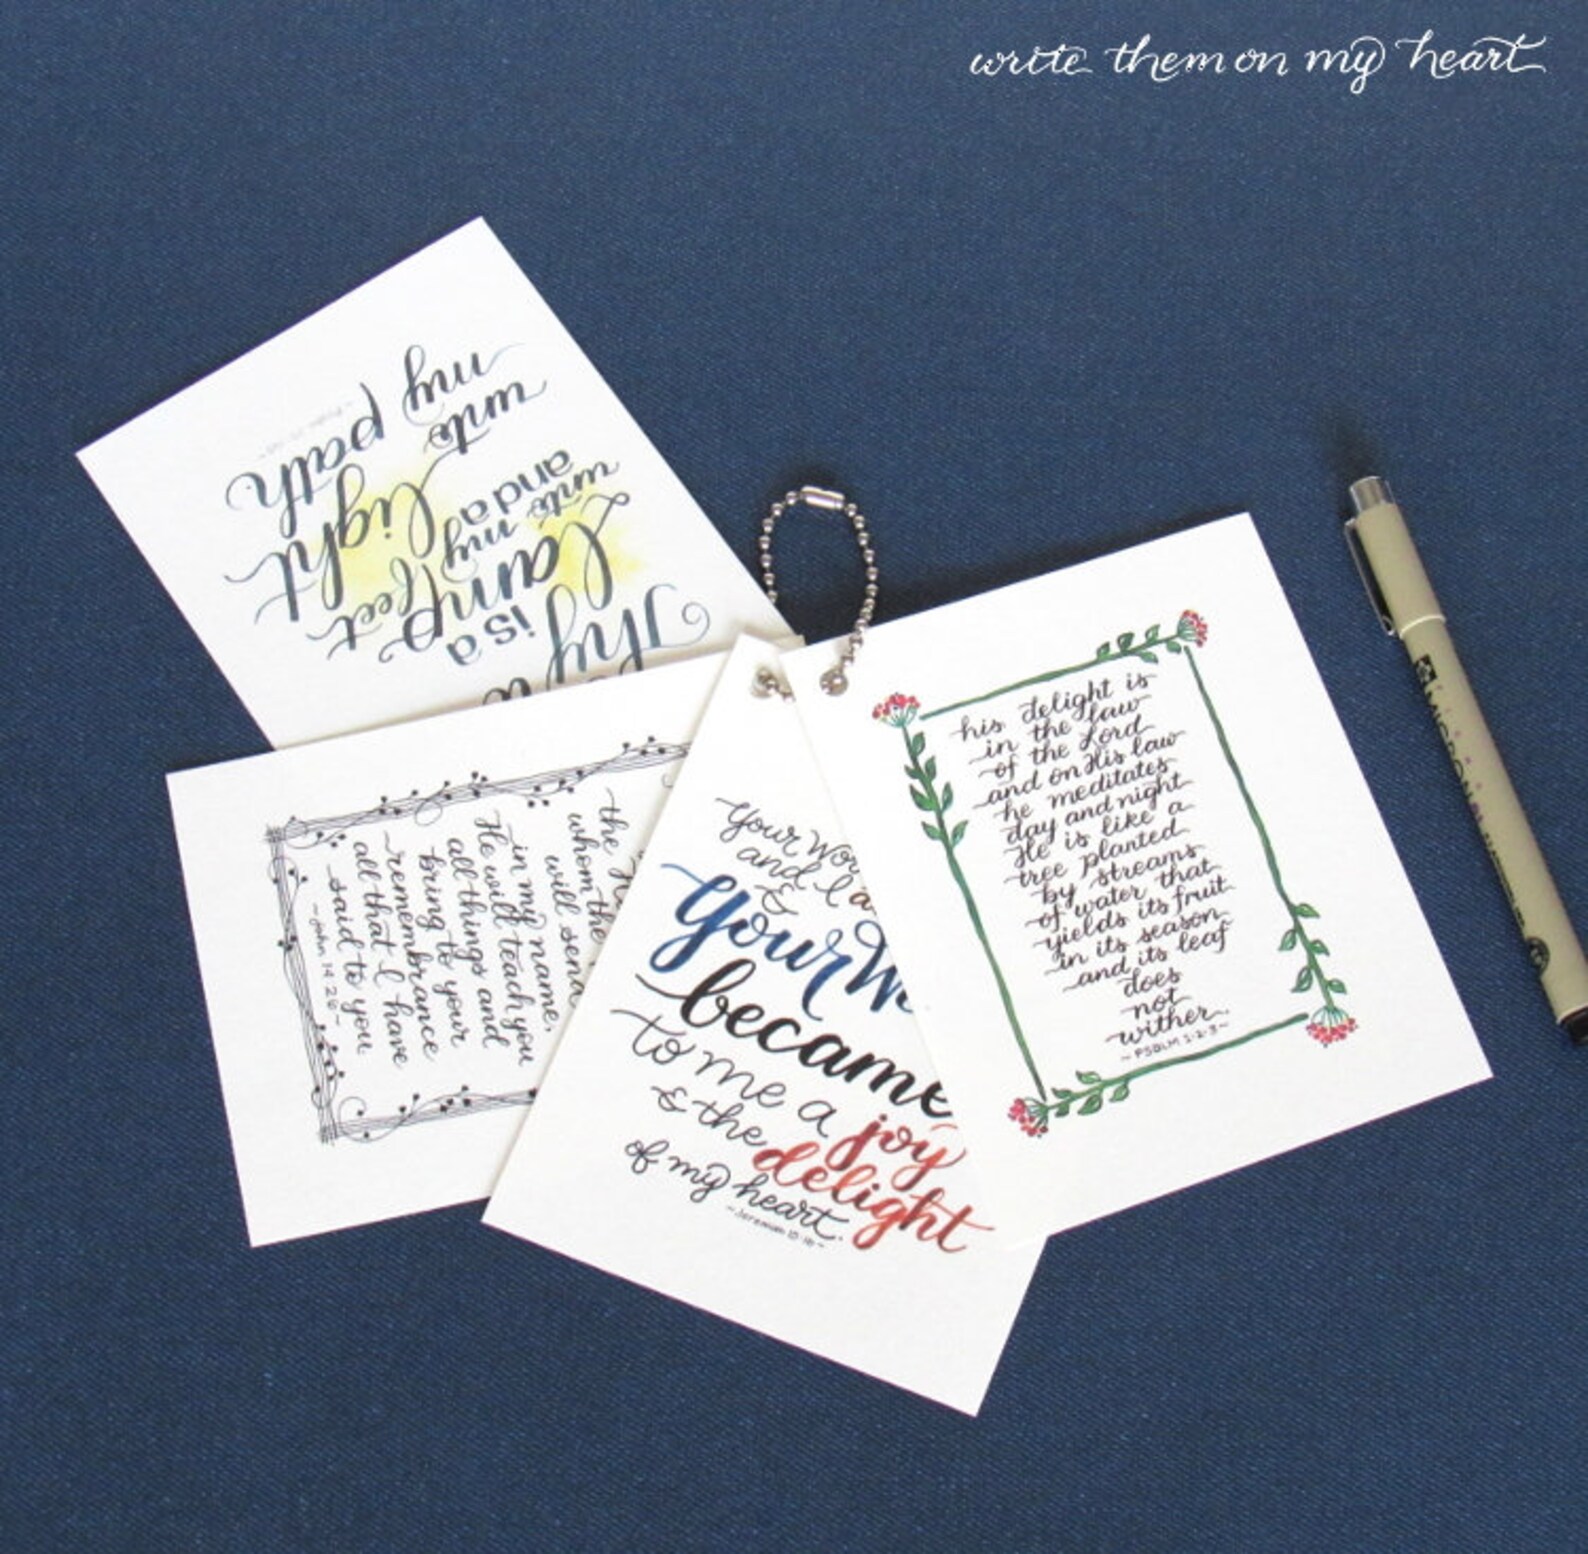 write them on my heart
Thy
is a
lamp
unto my feet
and a light
unto
my path
the
whom the
will send
in my name,
He will teach you
all things and
bring to your
remembrance
all that I have
said to you.
~John 14:26~
Your
and I
&
Your
became
to me a joy
& the delight
of my heart.
~Jeremiah 15:16~
his delight is
in the law
of the Lord
and on His law
he meditates
day and night
He is like a
tree planted
by streams
of water that
yields its fruit
in its season
and its leaf
does
not
wither.
~PSALM 1:2-3~
MICRON